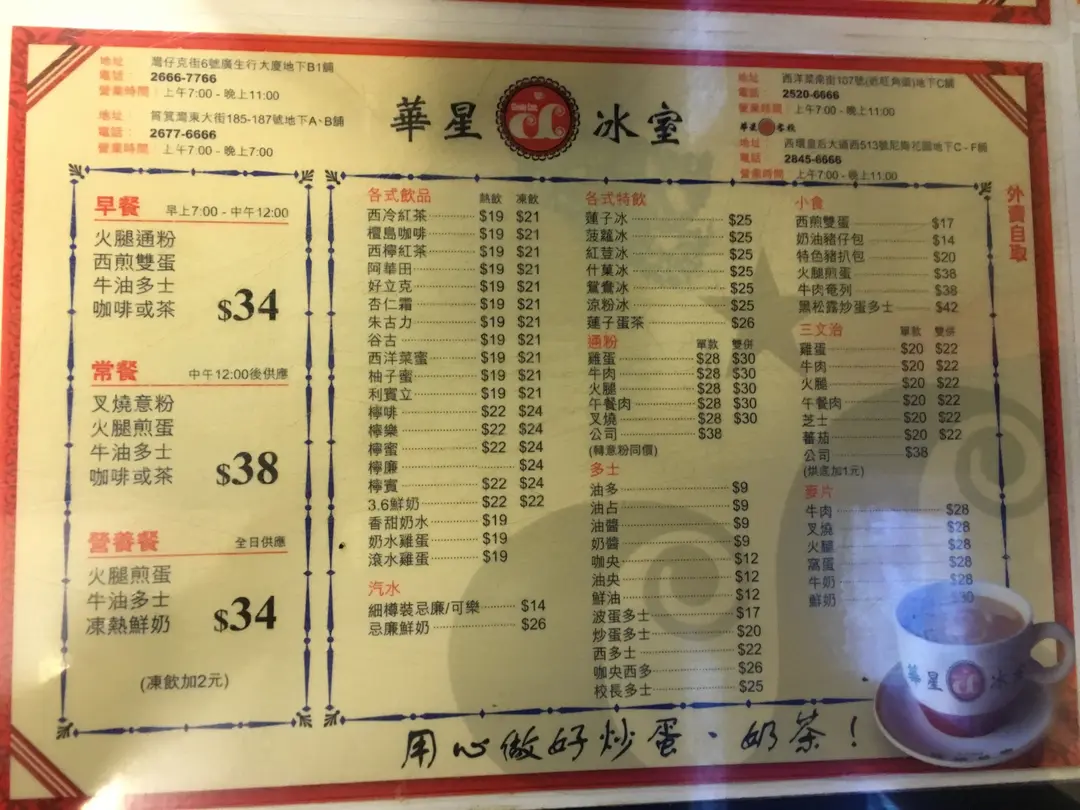 地址： 灣仔克街6號廣生行大廈地下B1舖
電話： 2666-7766
營業時間：上午7:00 - 晚上11:00
地址： 筲箕灣東大街185-187號地下A、B舖
電話： 2677-6666
營業時間 上午7:00 - 晚上7:00
華星冰室
地址 西洋菜南街107號(近旺角道)地下C舖
電話： 2520-6666
營業時間： 上午7:00 - 晚上11:00
華星冰室
地址： 西環皇后大道西513號尼梅花園地下C - F舖
電話： 2845-6666
營業時間： 上午7:00 - 晚上11:00
外賣自取
早餐 早上7:00 - 中午12:00
火腿通粉
西煎雙蛋
牛油多士
咖啡或茶 $34
常餐 中午12:00後供應
叉燒意粉
火腿煎蛋
牛油多士
咖啡或茶 $38
營養餐 全日供應
火腿煎蛋
牛油多士
凍熱鮮奶 $34
(凍飲加2元)
各式飲品 熱飲 凍飲
西冷紅茶 $19 $21
檀島咖啡 $19 $21
西檸紅茶 $19 $21
阿華田 $19 $21
好立克 $19 $21
杏仁霜 $19 $21
朱古力 $19 $21
谷古 $19 $21
西洋菜蜜 $19 $21
柚子蜜 $19 $21
利賓立 $19 $21
檸啡 $22 $24
檸樂 $22 $24
檸蜜 $22 $24
檸廉 $24
檸賓 $22 $24
3.6鮮奶 $22 $22
香甜奶水 $19
奶水雞蛋 $19
滾水雞蛋 $19
汽水
細樽裝忌廉/可樂 $14
忌廉鮮奶 $26
各式特飲
蓮子冰 $25
菠蘿冰 $25
紅荳冰 $25
什菓冰 $25
鴛鴦冰 $25
涼粉冰 $25
蓮子蛋茶 $26
通粉 單款 雙併
雞蛋 $28 $30
牛肉 $28 $30
火腿 $28 $30
午餐肉 $28 $30
叉燒 $28 $30
公司 $38
(轉意粉同價)
多士
油多 $9
油占 $9
油醬 $9
奶醬 $9
咖央 $12
油央 $12
鮮油 $12
波蛋多士 $17
炒蛋多士 $20
西多士 $22
咖央西多 $26
校長多士 $25
小食
西煎雙蛋 $17
奶油豬仔包 $14
特色豬扒包 $20
火腿煎蛋 $38
牛肉奄列 $38
黑松露炒蛋多士 $42
三文治 單款 雙併
雞蛋 $20 $22
牛肉 $20 $22
火腿 $20 $22
午餐肉 $20 $22
芝士 $20 $22
蕃茄 $20 $22
公司 $38
(烘底加1元)
麥片
牛肉 $28
叉燒 $28
火腿 $28
窩蛋 $28
牛奶 $28
鮮奶 $30
華星冰室
用心做好炒蛋、奶茶！